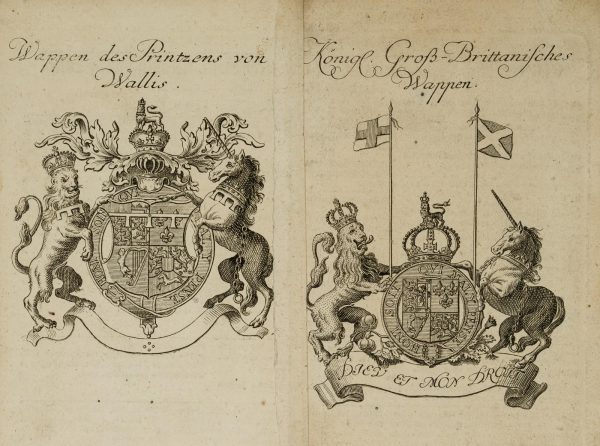 Wappen des Printzens von
Wallis.
Königl. Groß-Brittanisches
Wappen.
DIEU ET MON DROIT